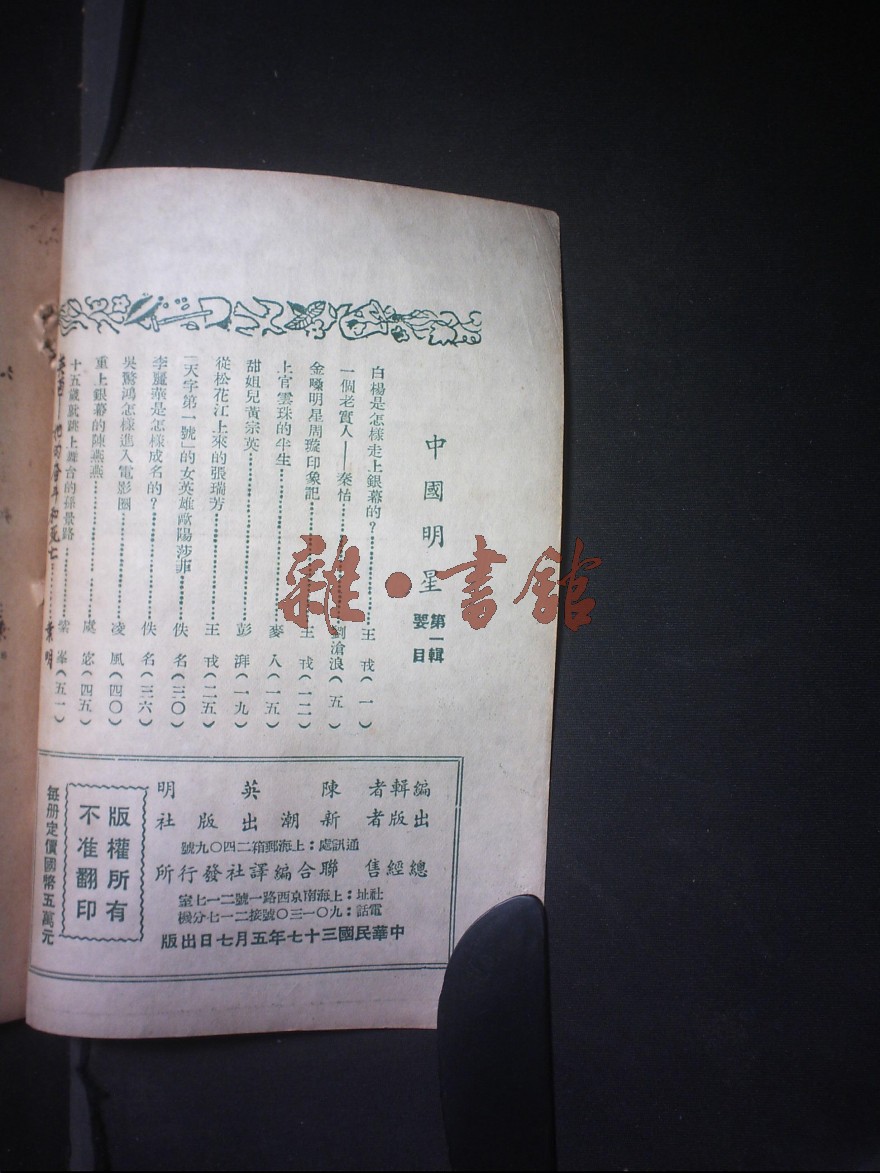 中國明星 第一輯 要目
白楊是怎樣走上銀幕的?……王戎(一)
一個老實人——秦怡……劉滄浪(五)
金嗓明星周璇印象記……王戎(一二)
上官雲珠的半生……麥人(一五)
甜姐兒黃宗英……彭湃(一九)
從松花江上來的張瑞芳……王戎(二五)
「天字第一號」的女英雄歐陽莎菲……佚名(三〇)
李麗華是怎樣成名的?……佚名(三六)
吳驚鴻怎樣進入電影圈……凌風(四〇)
重上銀幕的陳燕燕……處宓(四五)
十五歲就跳上舞台的孫景路……紫峯(五一)
葉明
編輯者 陳英明
出版者 新潮出版社
通訊處:上海郵箱二四〇九號
總經售 聯合編譯社發行所
社址:上海南京西路一號二一七室
電話:九〇一三〇號接二一七分機
中華民國三十七年五月七日出版
版權所有
不准翻印
每册定價國幣五萬元
雜·書館